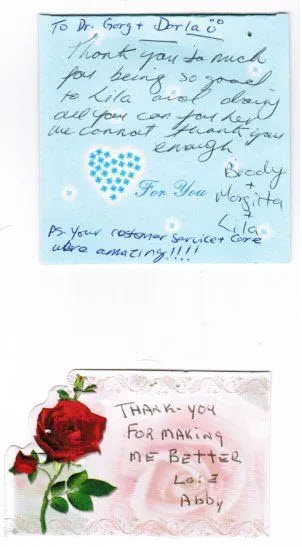 To Dr. Garg + Darla
Thank you so much
for being so good
to Lila and doing
all you can for her
we cannot thank you
enough
For You
Brady
+
Margitta
+
Lila
P.S. Your customer service + care
were amazing!!!!
THANK-YOU
FOR MAKING
ME BETTER
LOVE
Abby